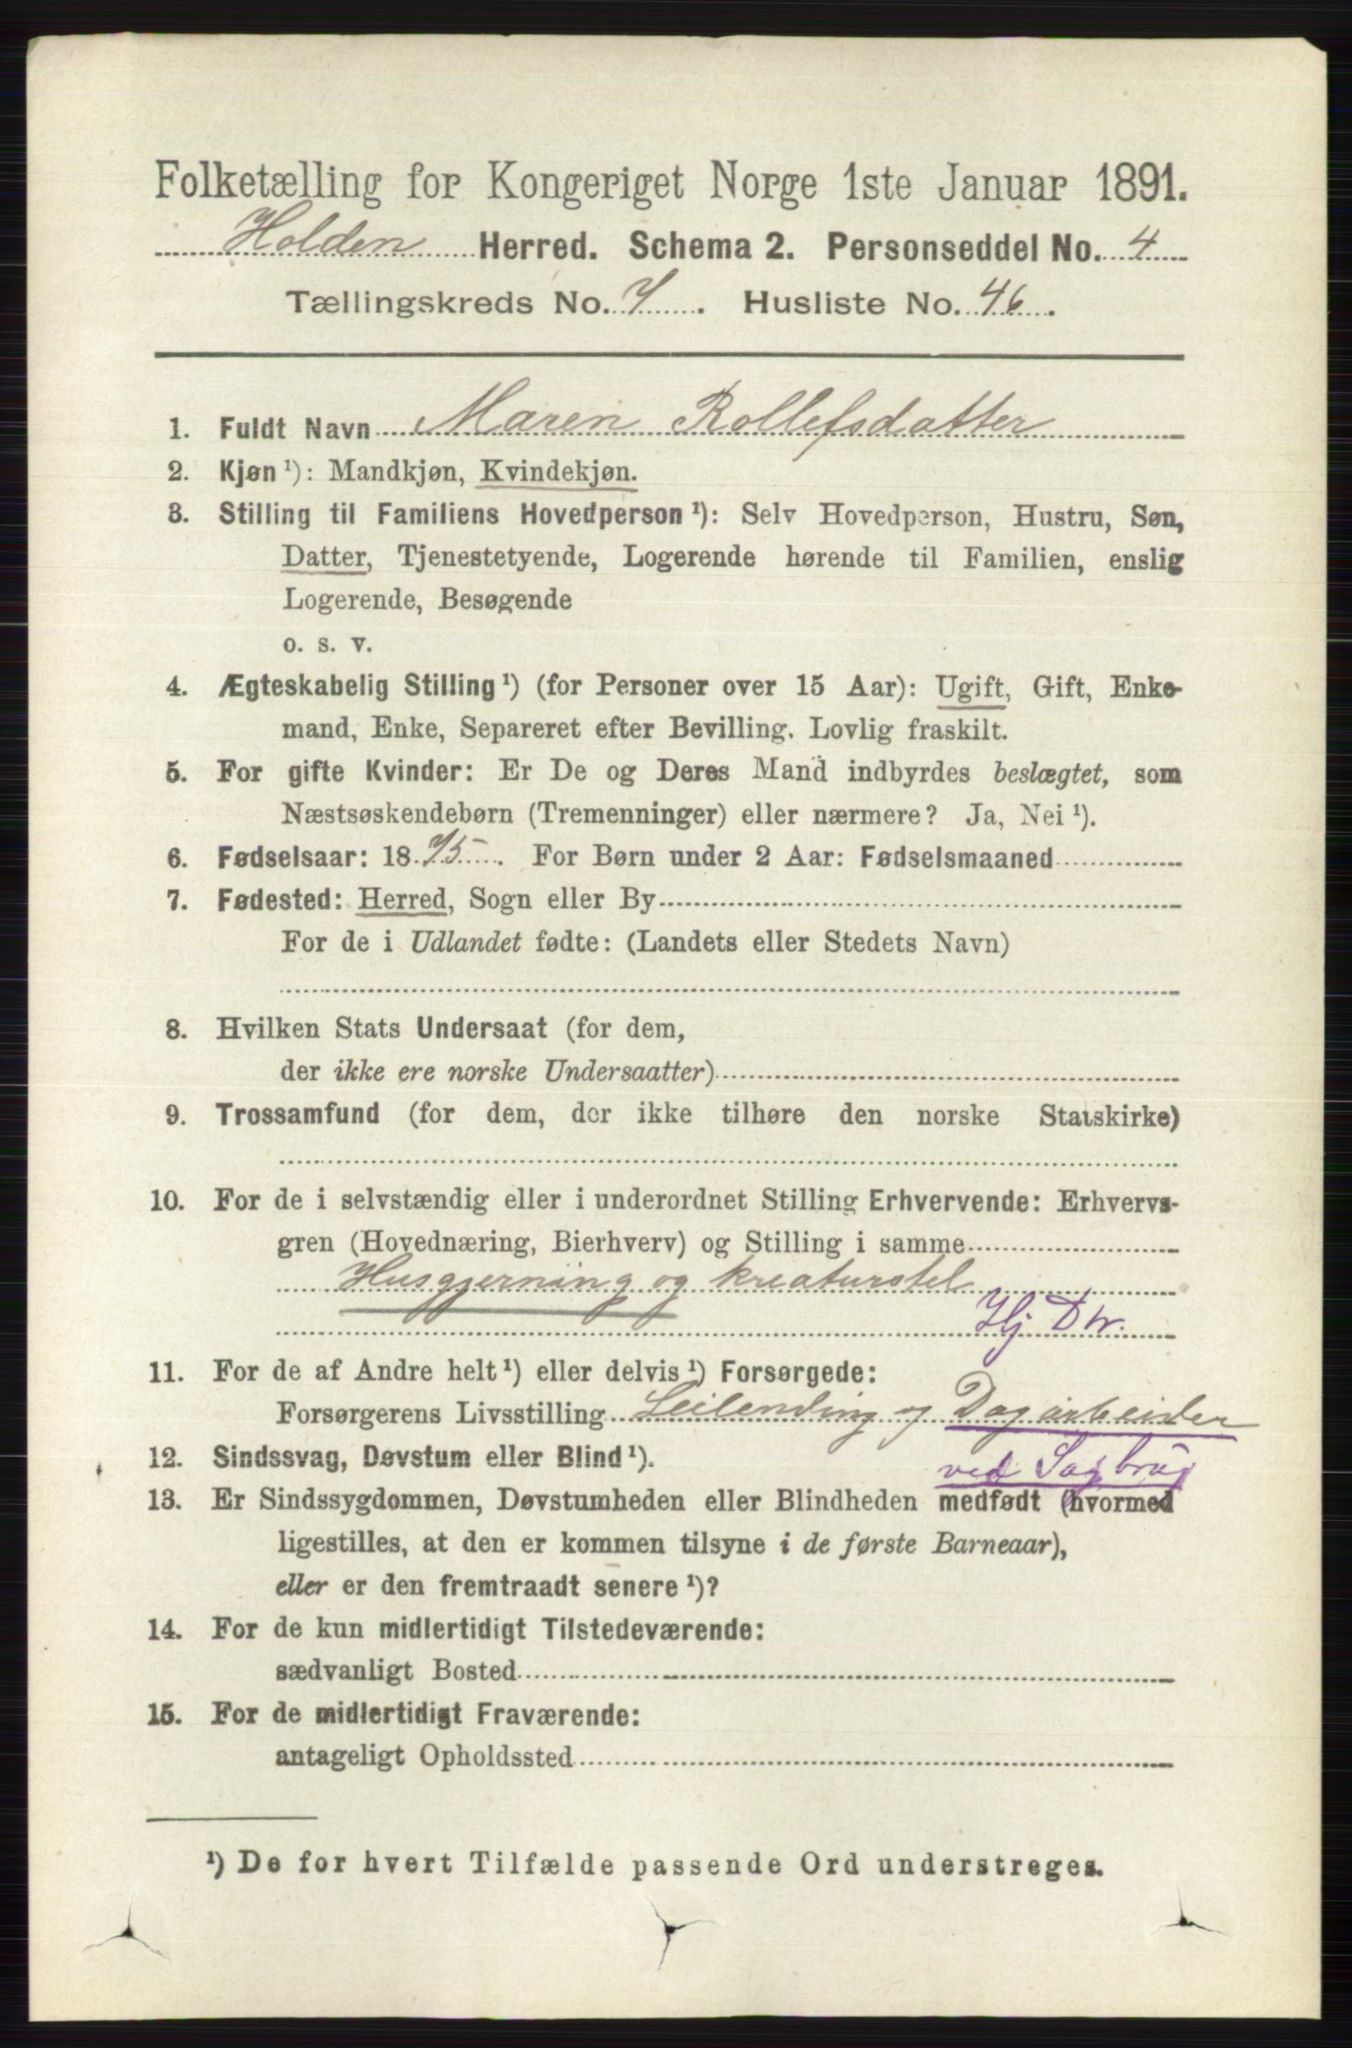 Folketælling for Kongeriget Norge 1ste Januar 1891.
Holden Herred. Schema 2. Personseddel No. 4
Tællingskreds No. 7. Husliste No. 46.
1. Fuldt Navn Maren Rollefsdatter
2. Kjøn ¹): Mandkjøn, Kvindekjøn.
3. Stilling til Familiens Hovedperson ¹): Selv Hovedperson, Hustru, Søn,
Datter, Tjenestetyende, Logerende hørende til Familien, enslig
Logerende, Besøgende
o. s. v.
4. Ægteskabelig Stilling ¹) (for Personer over 15 Aar): Ugift, Gift, Enke-
mand, Enke, Separeret efter Bevilling. Lovlig fraskilt.
5. For gifte Kvinder: Er De og Deres Mand indbyrdes beslægtet, som
Næstsøskendebørn (Tremenninger) eller nærmere? Ja, Nei ¹).
6. Fødselsaar: 1875. For Børn under 2 Aar: Fødselsmaaned
7. Fødested: Herred, Sogn eller By
For de i Udlandet fødte: (Landets eller Stedets Navn)
8. Hvilken Stats Undersaat (for dem,
der ikke ere norske Undersaatter)
9. Trossamfund (for dem, der ikke tilhøre den norske Statskirke)
10. For de i selvstændig eller i underordnet Stilling Erhvervende: Erhvervs-
gren (Hovednæring, Bierhverv) og Stilling i samme
Husgjerning og kreaturstel
Hj Dtr.
11. For de af Andre helt ¹) eller delvis ¹) Forsørgede:
Forsørgerens Livsstilling Leilending og Dagarbeider
ved Sagbrug
12. Sindssvag, Døvstum eller Blind ¹).
13. Er Sindssygdommen, Døvstumheden eller Blindheden medfødt (hvormed
ligestilles, at den er kommen tilsyne i de første Barneaar),
eller er den fremtraadt senere ¹)?
14. For de kun midlertidigt Tilstedeværende:
sædvanligt Bosted
15. For de midlertidigt Fraværende:
antageligt Opholdssted
¹) De for hvert Tilfælde passende Ord understreges.